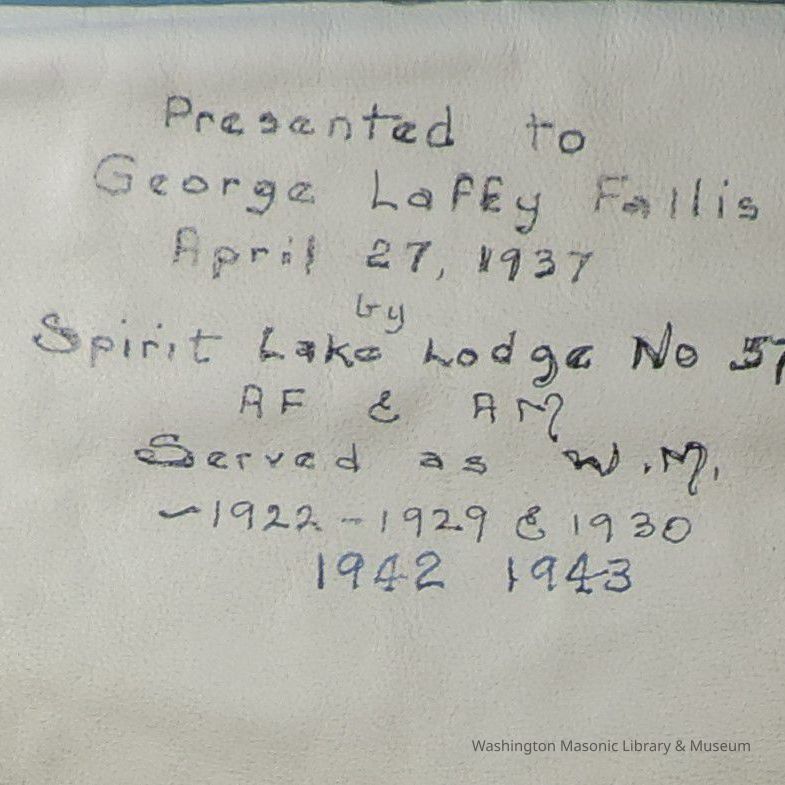 Presented to
George Laffey Fallis
April 27, 1937
by
Spirit Lake Lodge No 57
AF & AM
Served as W.M.
~1922 - 1929 & 1930
1942 1943
Washington Masonic Library & Museum